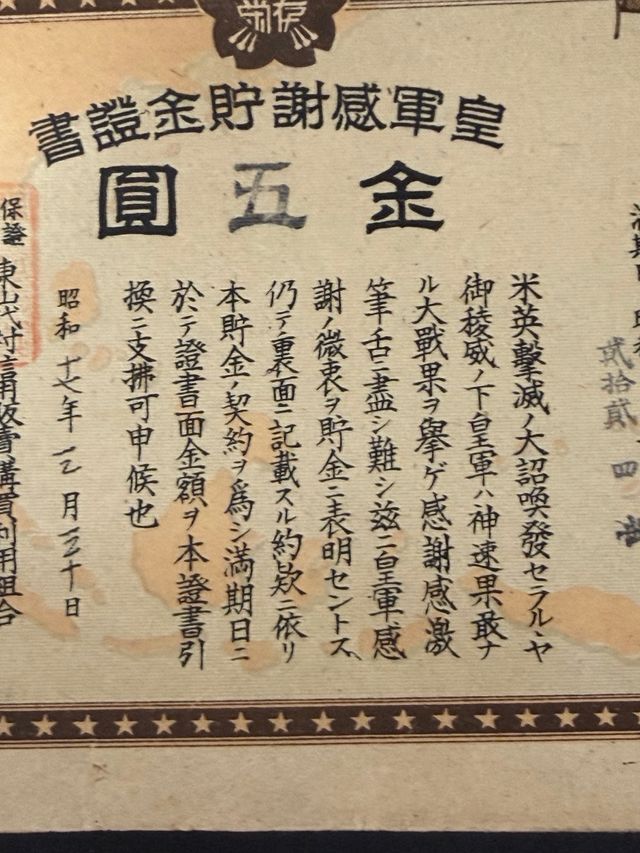 皇軍感謝貯金證書
金五圓
貳拾貳 四
米英擊滅ノ大詔喚發セラルヽヤ
御稜威ノ下皇軍ハ神速果敢ナ
ル大戰果ヲ擧ゲ感謝感激
筆舌ニ盡シ難シ玆ニ皇軍感
謝ノ微衷ヲ貯金ニ表明セントス、
仍テ裏面ニ記載スル約款ニ依リ
本貯金ノ契約ヲ爲シ滿期日ニ
於テ證書面金額ヲ本證書引
換ニ支拂可申候也
昭和十七年 三月三十日
保證
東山代村信用販賣購買利用組合